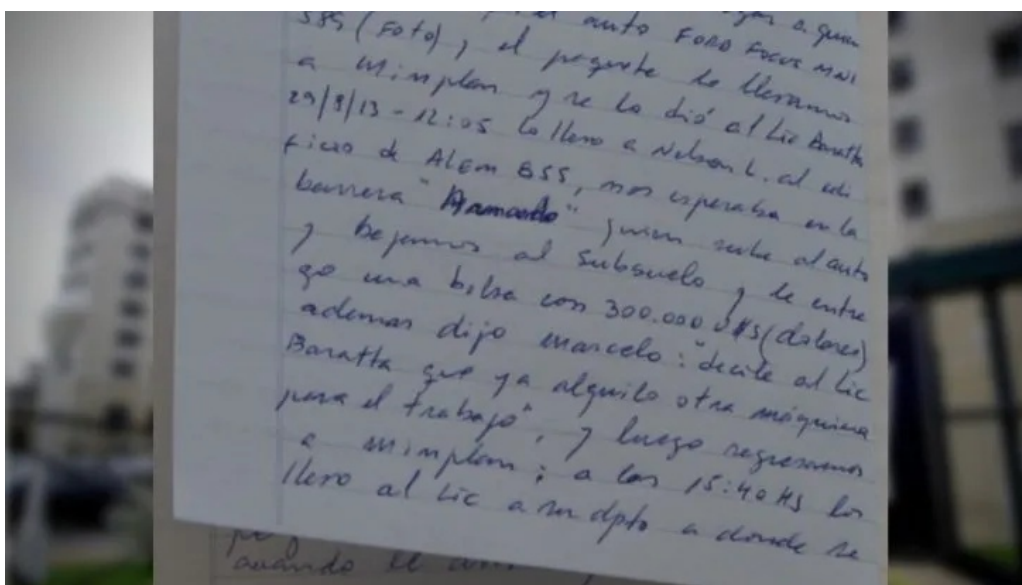 a quien
el auto FORD FOCUS MNI
585 (Foto), el paquete lo llevamos
a Minplan y se lo dió al Lic Baratta
29/8/13-12:05 lo llevo a Nelson L. al edi
ficio de ALEM 855, nos esperaba en la
barrera quien sube al auto
y bajamos al Subsuelo y le entre
go una bolsa con 300.000 U$S (dolares)
ademas dijo Marcelo: "decile al Lic
Baratta que ya alquilo otra máquina
para el trabajo", y luego regresamos
a Minplan; a las 15:40 HS lo
llevo al Lic a su dpto a donde se
cuando el